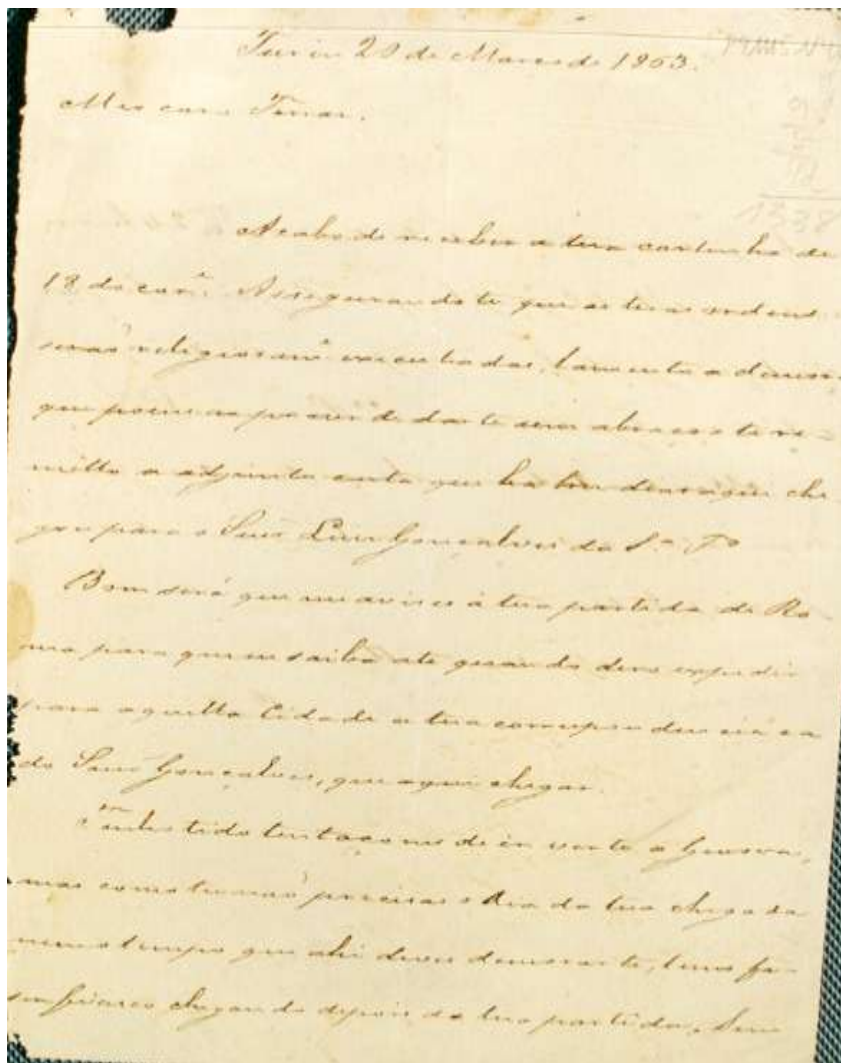 Turin 20 de Março de 1863.
Meu caro Ferraz.
Acabo de receber a tua cartinha de
18 do corr.e Assegurando te que as tuas ordens
serão religiosam.e executadas, lamento a demora
que poem ao prazer de dar te um abraço e te re-
metto a adjunta carta que ha tres dias aqui che
gou para o Luiz Gonçalves da S.a
Bom será que me avises á tua partida de Ro
ma para que eu saiba até quando devo expedir
para aquella Cidade a tua correspondencia e a
do Gonçalves, que aqui chegar.
Tenho tido tentaçoens de ir ver te a Genova,
mas como tu não precisas o dia da tua chegada
nem o tempo que ahi deves demorar te, temo fa-
zer fiasco chegando depois da tua partida. Sem